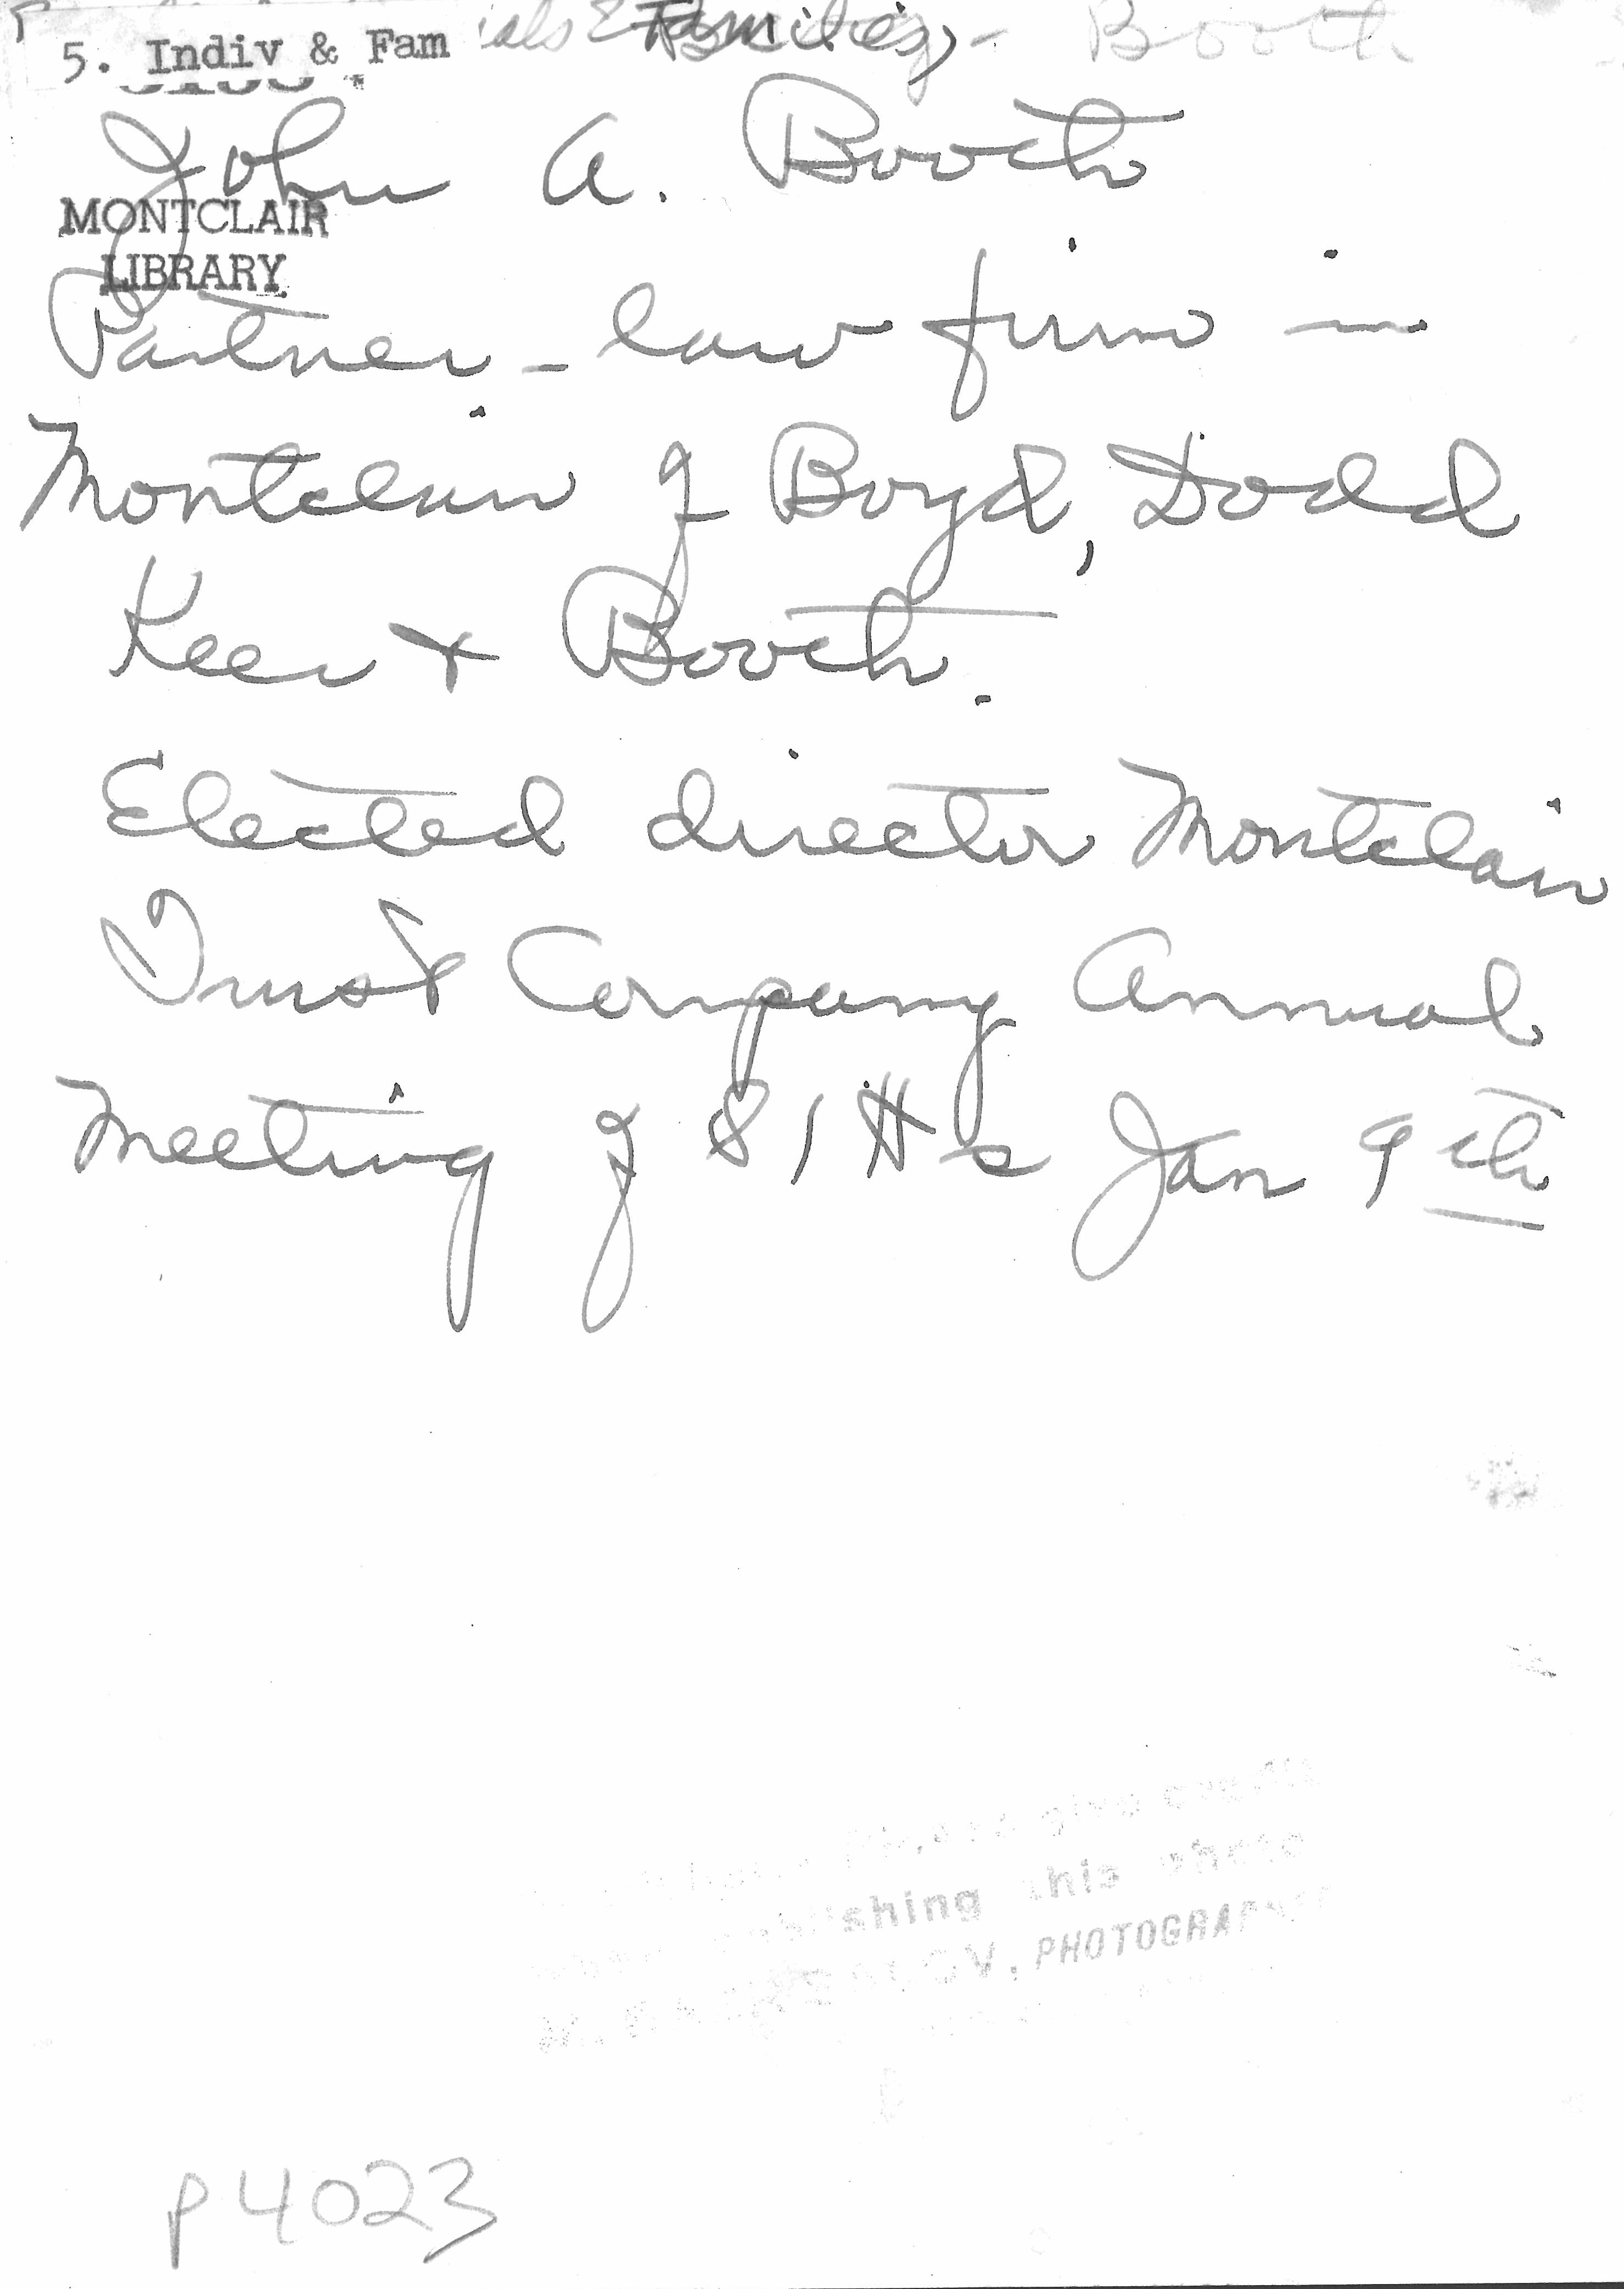 5. Indiv & Fam Families - Booth
John A. Booth
MONTCLAIR
LIBRARY
Partner - law firm in
Montclair of Boyd, Dodd
Keer + Booth.
Elected director Montclair
Trust Company Annual
Meeting of S/Hs Jan 9th
give credit
publishing this photo
PHOTOGRAPHER
P4023